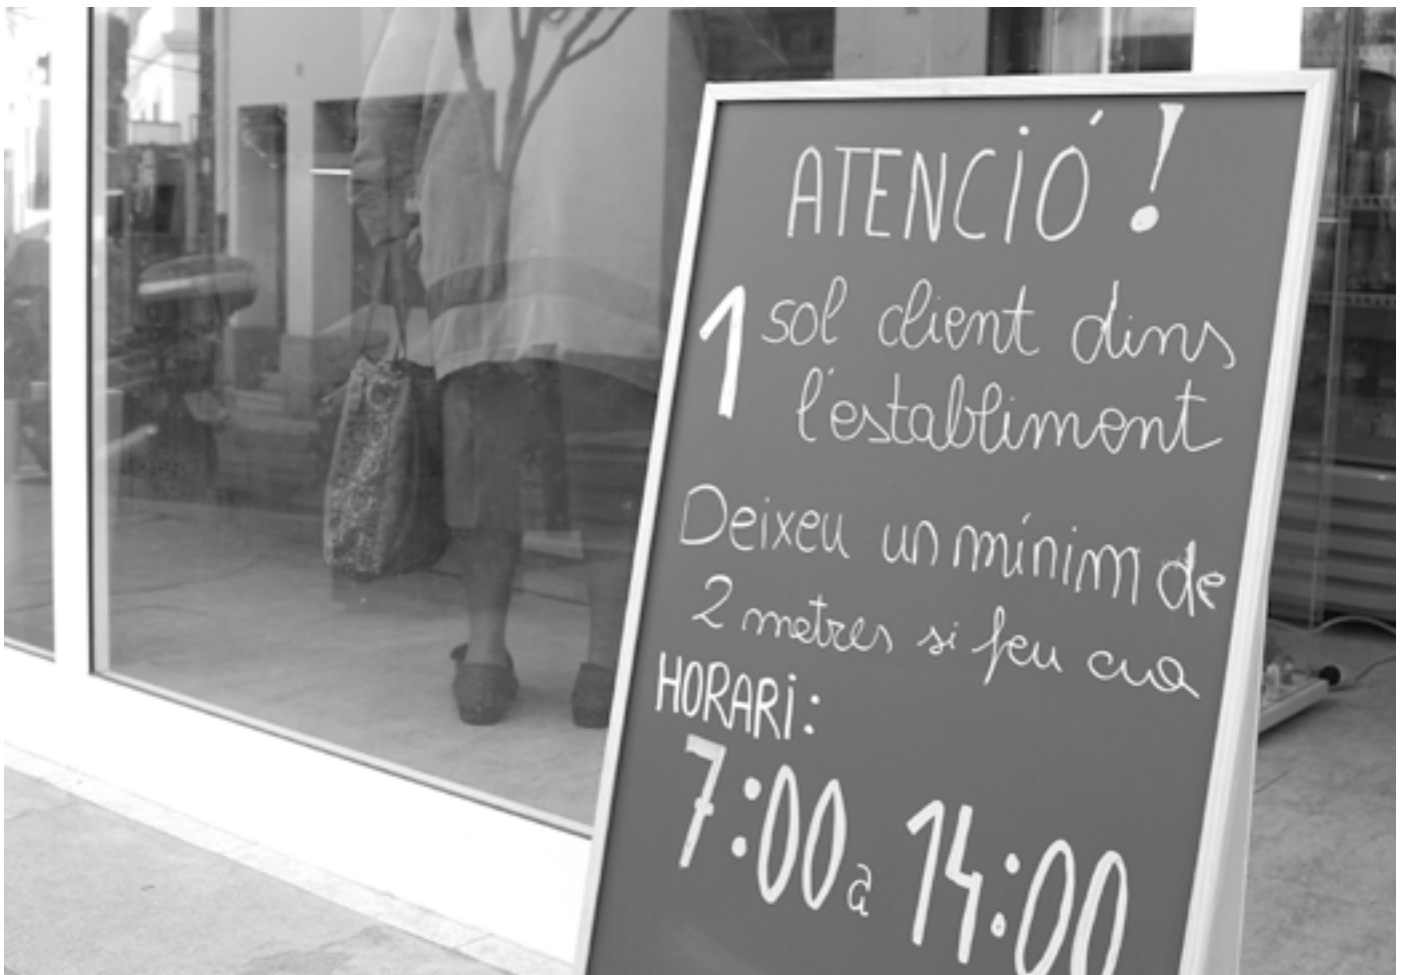 ATENCIÓ!
1 sol client dins
l'establiment
Deixeu un mínim de
2 metres si feu cua
HORARI:
7:00 a 14:00